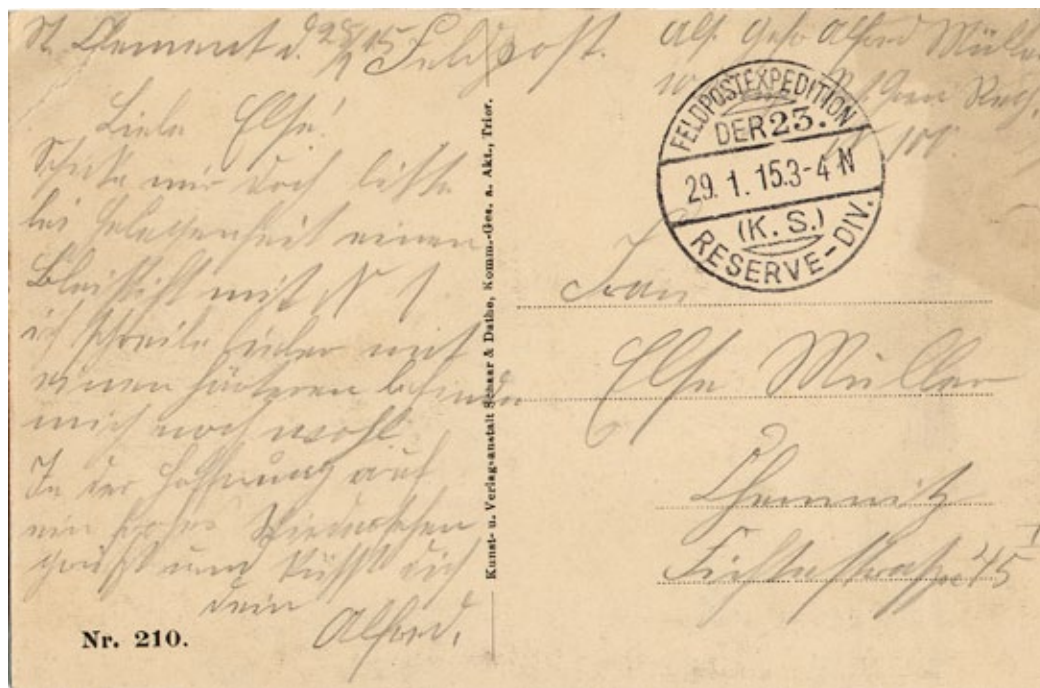 St. Clement d. 28/1 15 Feldpost.
Liebe Else!
Schicke mir doch bitte
bei Gelegenheit einen
Bleistift mit N 1
ich schreibe lieber mit
einen härteren befinde
mich noch wohl.
In der Hoffnung auf
ein frohes Wiedersehen
grüßt und küsst dich
dein
Alfred.
Nr. 210.
Kunst- u. Verlagsanstalt Schaar & Dathe, Komm.-Ges. a. Akt., Trier.
Alfred Müller
FELDPOSTEXPEDITION
DER 23.
29. 1. 15.3-4 N
(K. S.)
RESERVE-DIV.
Frau
Else Müller
Chemnitz
Fichtestraße 45